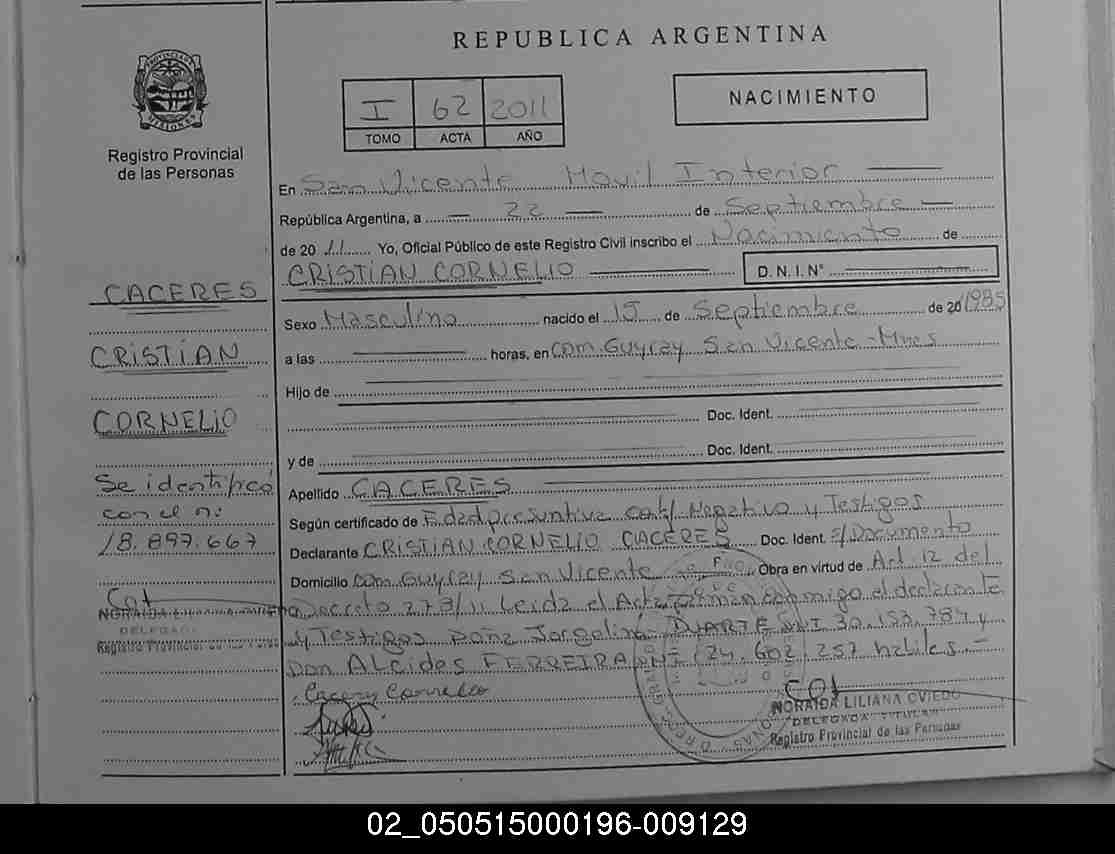 REPUBLICA ARGENTINA
PROVINCIA DE MISIONES
Registro Provincial
de las Personas
I 62 2011
TOMO ACTA AÑO
NACIMIENTO
En San Vicente Movil Interior
República Argentina, a 22 de Septiembre
de 2011 Yo, Oficial Público de este Registro Civil inscribo el Nacimiento de
CRISTIAN CORNELIO D.N.I. N°
CACERES
CRISTIAN
CORNELIO
Se identificó
con el n:
18.897.667
Sexo Masculino nacido el 15 de Septiembre de 20 1985
a las horas, en Com. Guyray San Vicente - Mnes
Hijo de
Doc. Ident.
y de Doc. Ident.
Apellido CACERES
Según certificado de Edad presuntiva cert/ Negativo y Testigos
Declarante CRISTIAN CORNELIO CACERES Doc. Ident. s/Documento
Domicilio Com Guyray San Vicente Obra en virtud de Art. 12 del
Decreto 278/11 Leida el Acta firman conmigo el declarante
y Testigos Doña Jorgelina DUARTE DNI 30.153.789 y
Don Alcides FERREIRA DNI 24.602.257 habiles
Cacery Cornelio
NORAIDA LILIANA OVIEDO
DELEGADA TITULAR
Registro Provincial de las Personas
DELEGADA
Registro Provincial de las Personas
02_050515000196-009129